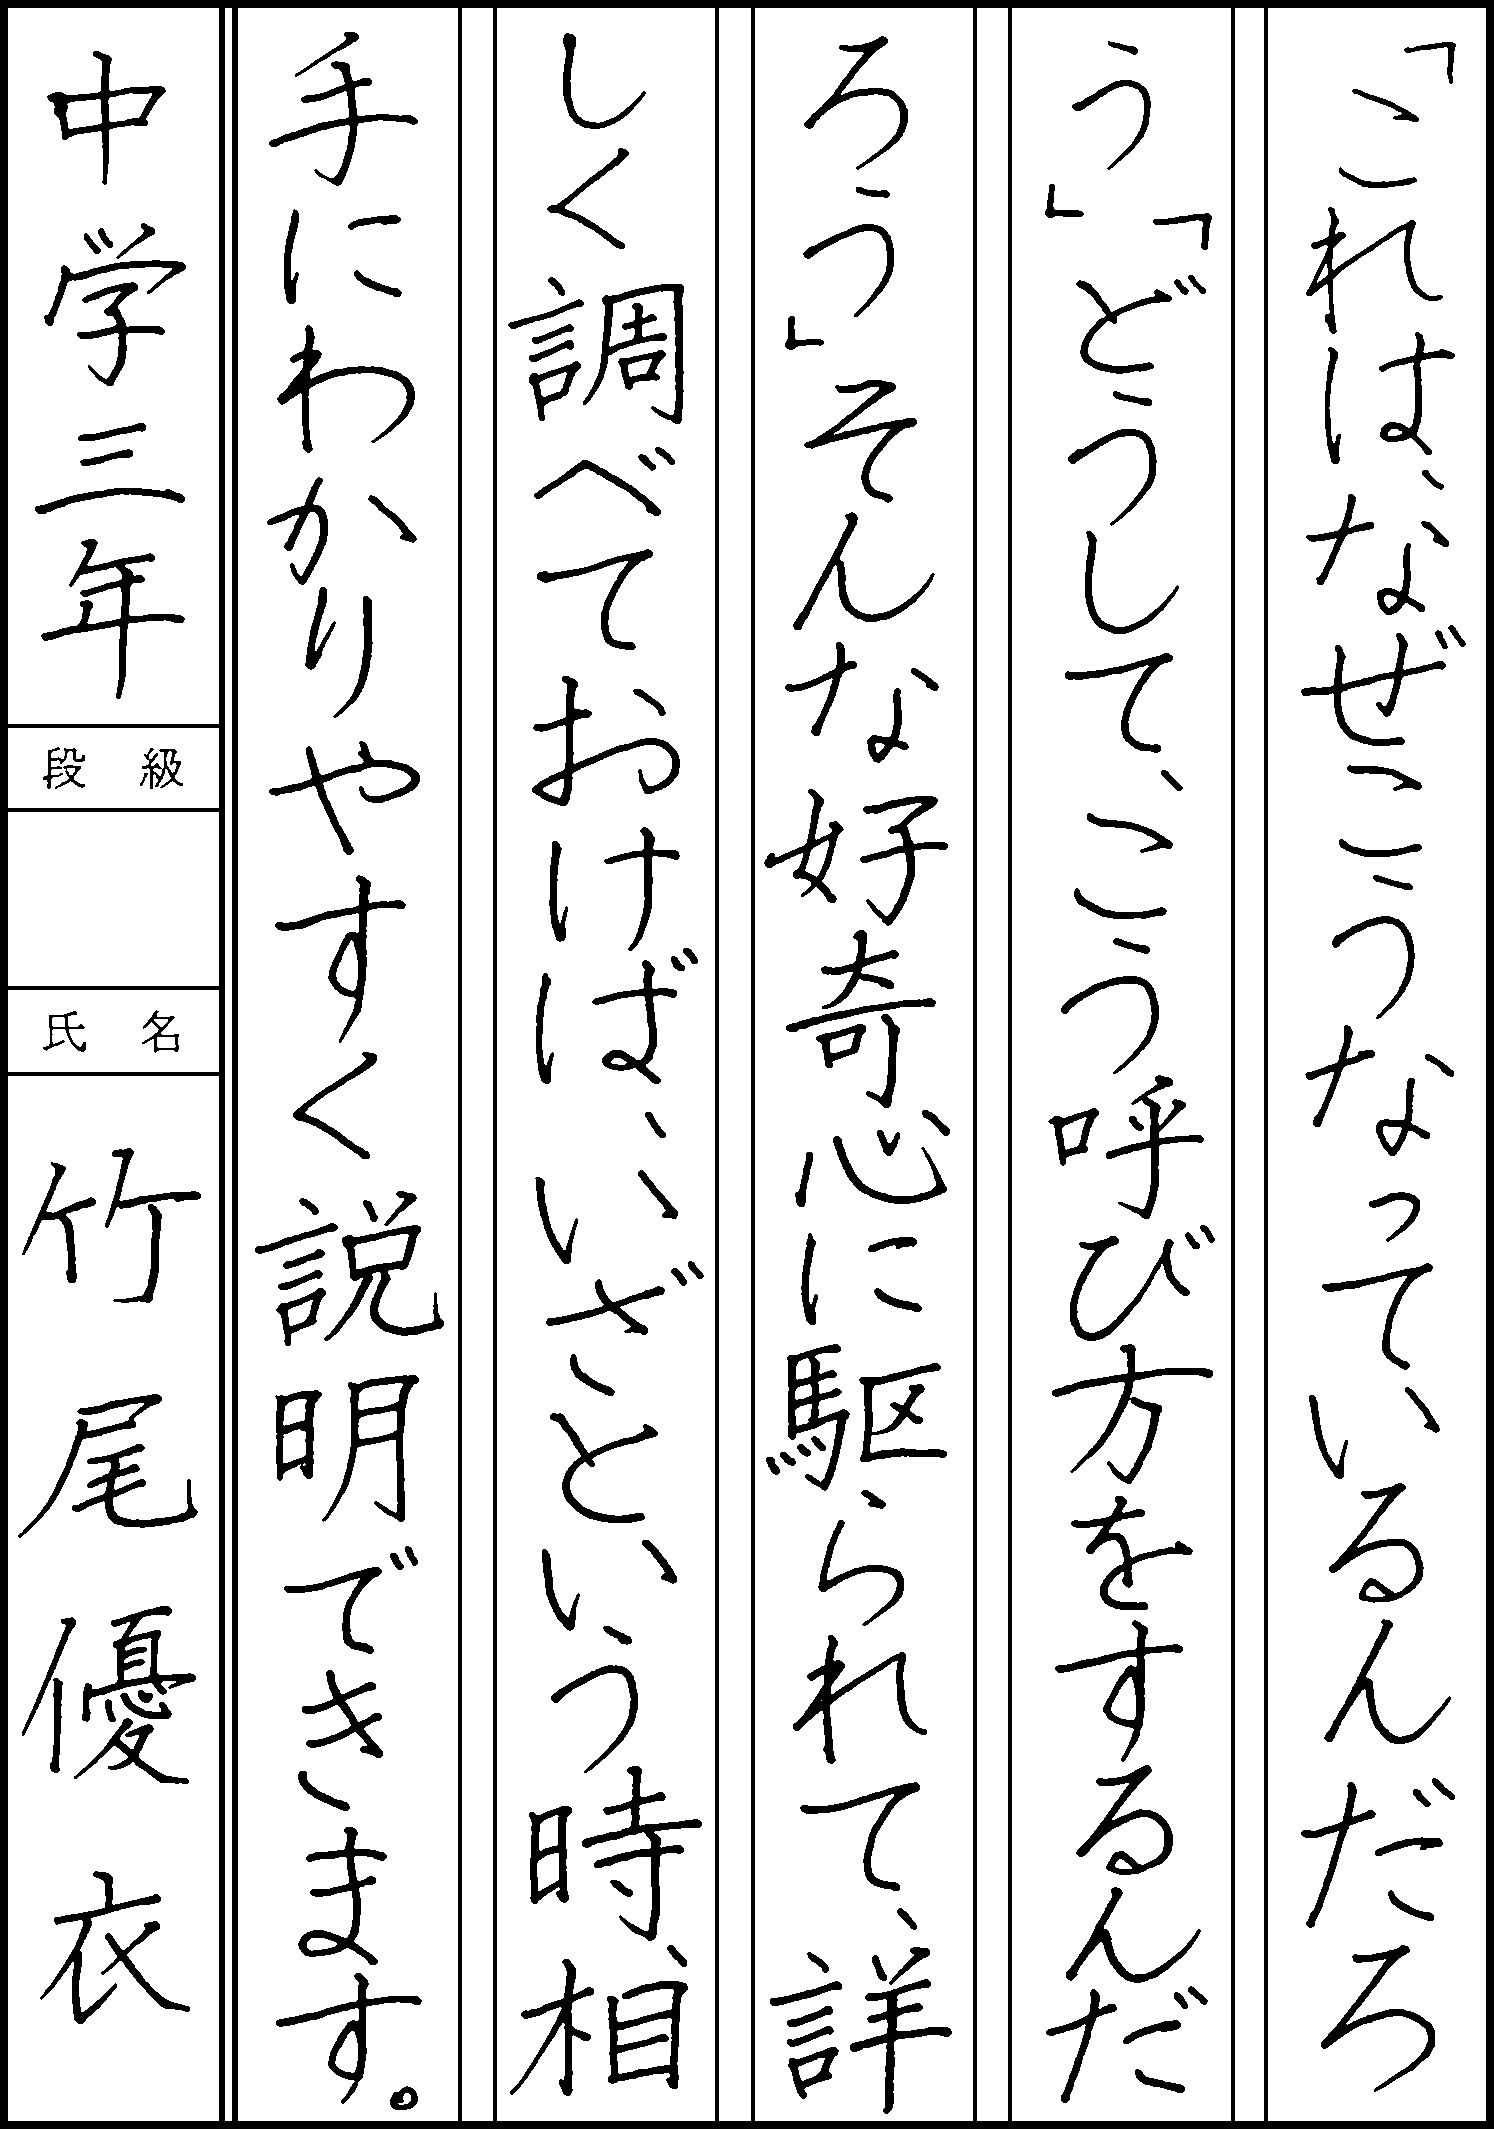 「これは、なぜこうなっているんだろ
う」「どうして、こう呼び方をするんだ
ろう」そんな好奇心に駆られて、詳
しく調べておけば、いざという時、相
手にわかりやすく説明できます。
中学三年
段級
氏名
竹尾優衣